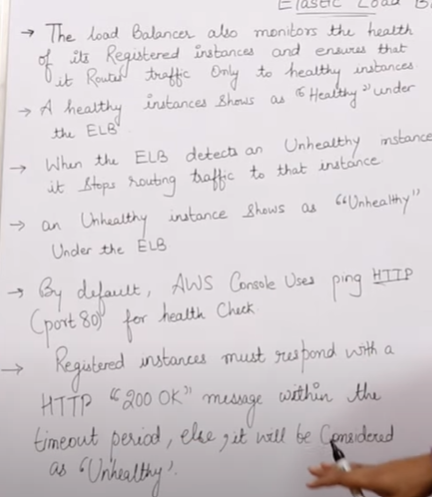 Elastic Load B
→ The load Balancer also monitors the health
of its Registered instances and ensures that
it Routes traffic Only to healthy instances
→ A healthy instances Shows as "Healthy" under
the ELB
→ When the ELB detects an Unhealthy instance
it Stops routing traffic to that instance
→ an Unhealthy instance Shows as "Unhealthy"
Under the ELB
→ By default, AWS Console Uses ping HTTP
(port 80) for health Check
→ Registered instances must respond with a
HTTP "200 OK" message within the
timeout period, else, it will be Considered
as "Unhealthy".